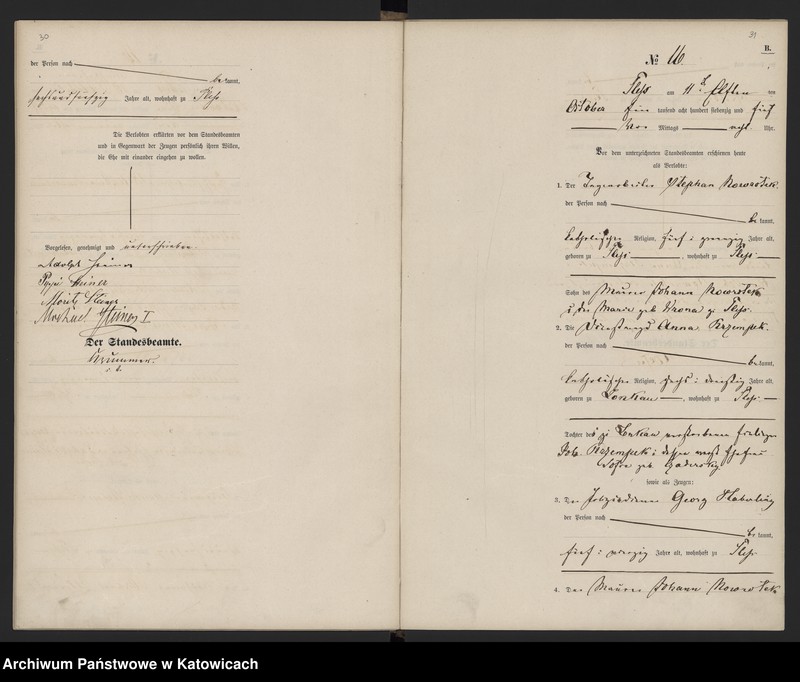 30
der Person nach
be kannt,
sechsundfünfzig Jahre alt, wohnhaft zu Pleß
Die Verlobten erklärten vor dem Standesbeamten
und in Gegenwart der Zeugen persönlich ihren Willen,
die Ehe mit einander eingehen zu wollen.
Vorgelesen, genehmigt und unterschrieben.
Adolph Heiner
Heiner
Moritz
I
Der Standesbeamte.
31
B.
№ 16.
Pleß am 11t Elften ten
October Ein tausend acht hundert siebenzig und fünf
Vor Mittags acht Uhr.
Vor dem unterzeichneten Standesbeamten erschienen heute
als Verlobte:
1. Der Stephan Nowrotek.
der Person nach
be kannt,
katholischer Religion, fünf : zwanzig Jahre alt,
geboren zu Pleß, wohnhaft zu Pleß
Sohn des Maurer Johann Nowrotek
u der Marie geb Wrona zu Pleß.
2. Die Dienstmagd Anna Krzempek.
der Person nach
be kannt,
katholischer Religion, sechs : dreißig Jahre alt,
geboren zu Lonkau, wohnhaft zu Pleß
Tochter des zu Lonkau verstorbenen
Joh. Krzempek : dessen Ehefrau
geb.
sowie als Zeugen:
3. Der Georg Haberling
der Person nach
be kannt,
fünf : zwanzig Jahre alt, wohnhaft zu Pleß.
4. Der Maurer Johann Nowrotek
Archiwum Państwowe w Katowicach